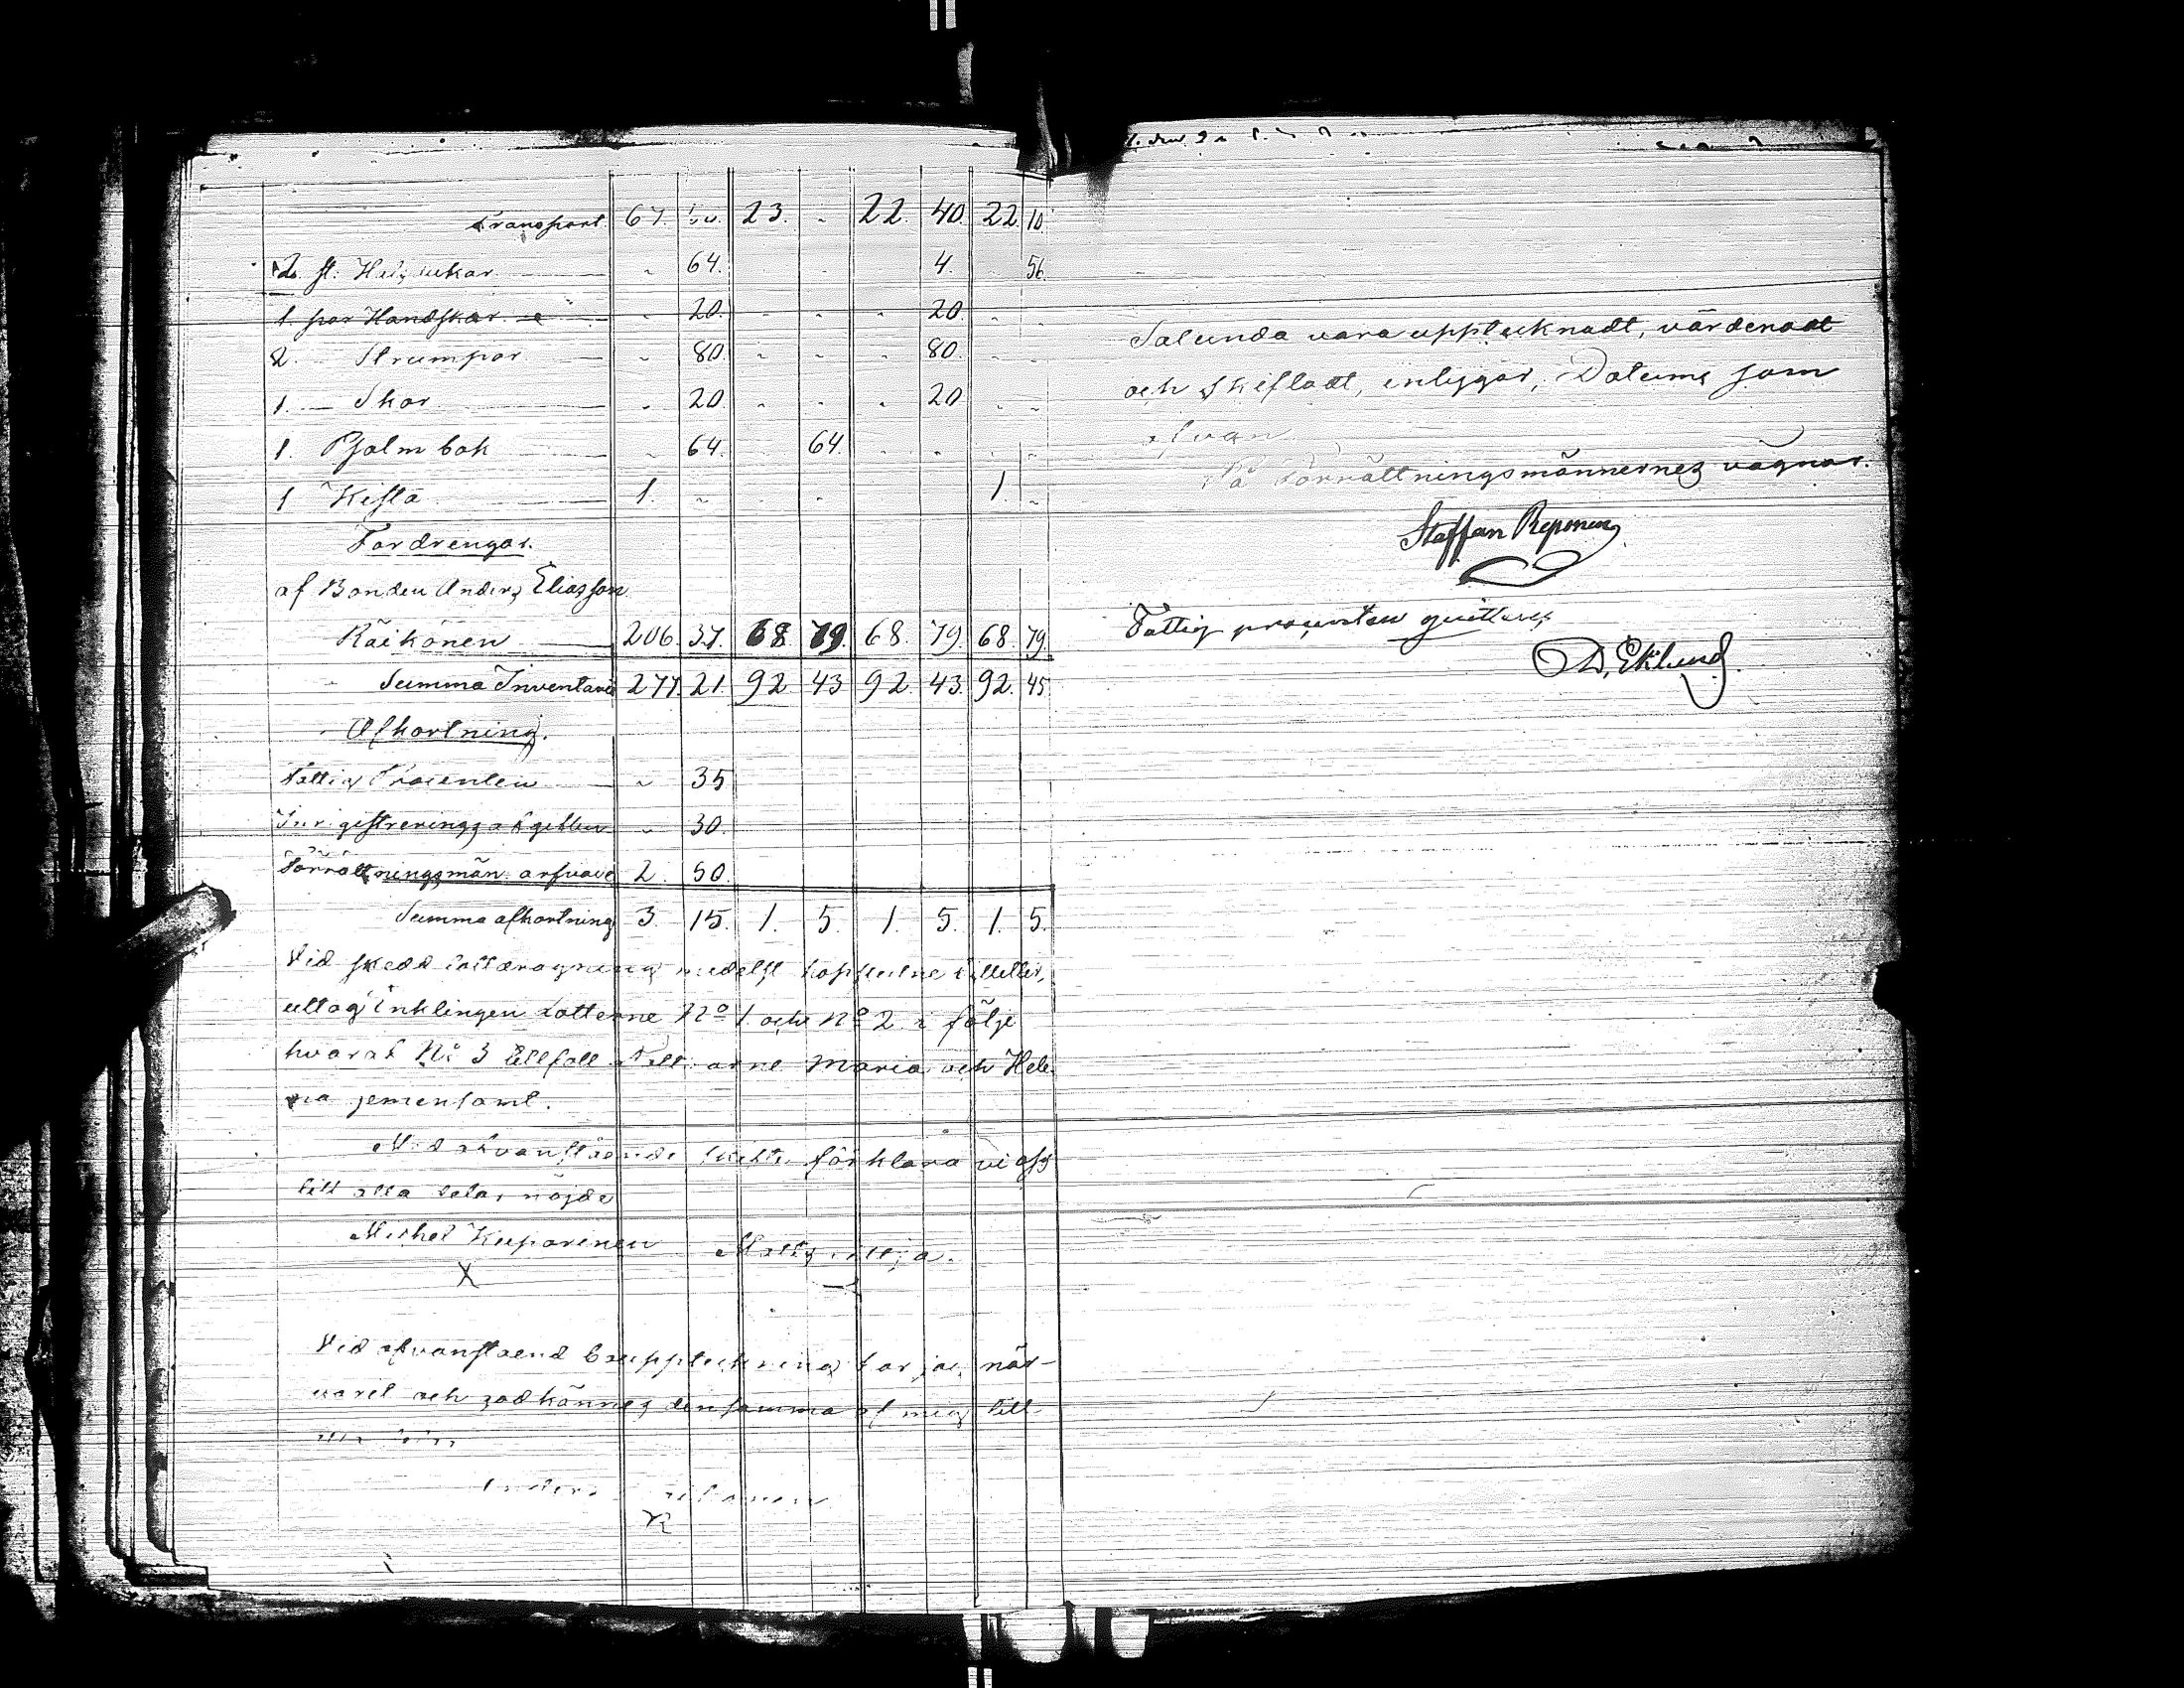 Transport. 67. 50. 23. - 22. 40. 22. 10.
2 st. Halsdukar - 64. - - - 4. - 56.
1. par Handskar - 20. - - - 20. - -
2. — Strumpor - 80. - - - 80. - -
1. — Skor - 20. - - - 20 - -
1. Psalm bok - 64. - 64. - - - -
1 Kista 1. - - - 1. -
Fordrengar.
af Bonden Anders Eliasson
Räikönen 206. 37. 68. 79. 68. 79. 68. 79.
Summa Inventarie 277. 21. 92 43 92. 43. 92. 45
Afkortning.
Fattig Procenten - 35
Inregistreringg afgiften - 30.
Förrättningsmän arfvode 2. 50.
Summa afkortning 3. 15. 1. 5. 1. 5. 1. 5.
Vid skedd lottdragning medelst
uttog Enklingen Lotterne No 1. och No 2. i följe
hvaraf No 3 tillfoll arne Maria och Hele-
na gemensamt.
Med ofvanstående skifte förklara vi oss
till alla delar nöjde
Michel Kuparinen Matts
X
Vid ofvanstaend bouppteckning har jag när-
varit och godkännes densamma af mig till
Anders
Salunda vara upptecknadt, värderadt
och skiftadt, intygar, Datums som
ofvan
På Förrättningsmännernes vägnar.
Staffan Reponen
Fattig procenten quitteras
D. Eklund.